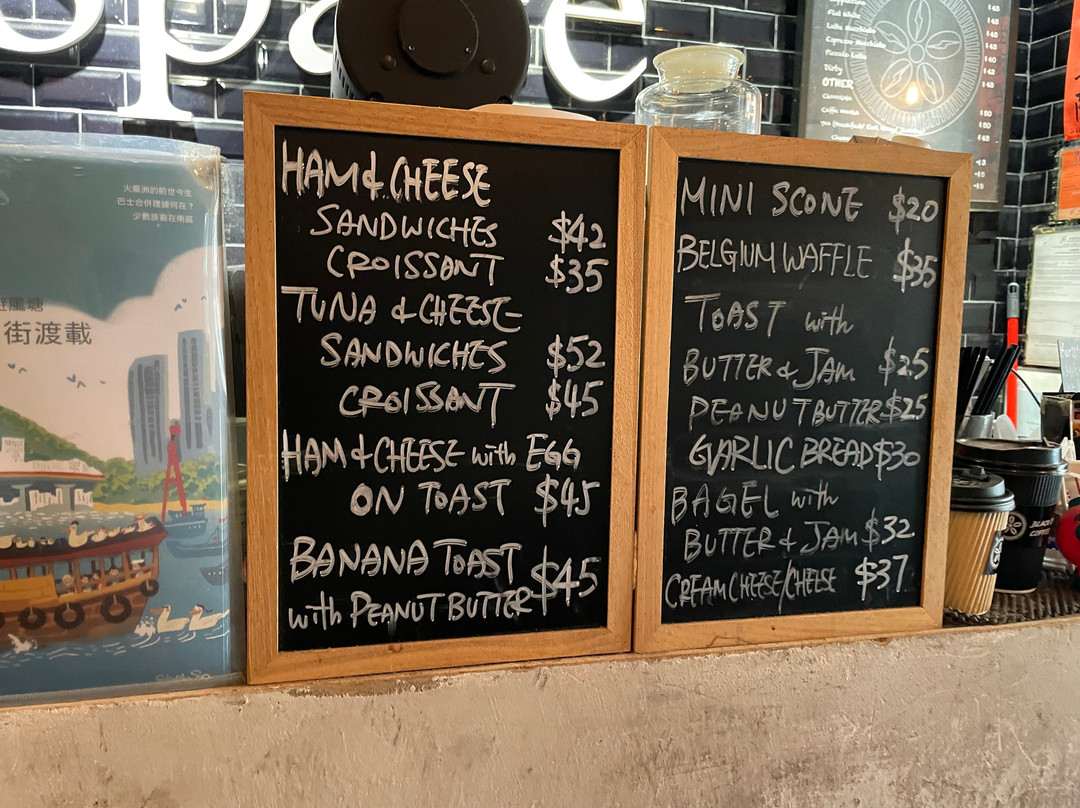 火藥洲的前世今生
巴士合併理據何在？
少數族裔在南區
避風塘
街渡載
HAM & CHEESE
SANDWICHES $42
CROISSANT $35
TUNA & CHEESE
SANDWICHES $52
CROISSANT $45
HAM & CHEESE with EGG
ON TOAST $45
BANANA TOAST
with PEANUT BUTTER $45
MINI SCONE $20
BELGIUM WAFFLE $35
TOAST with
BUTTER & JAM $25
PEANUT BUTTER $25
GARLIC BREAD $30
BAGEL with
BUTTER & JAM $32
CREAM CHEESE/CHEESE $37
Flat White
Dirty
OTHER